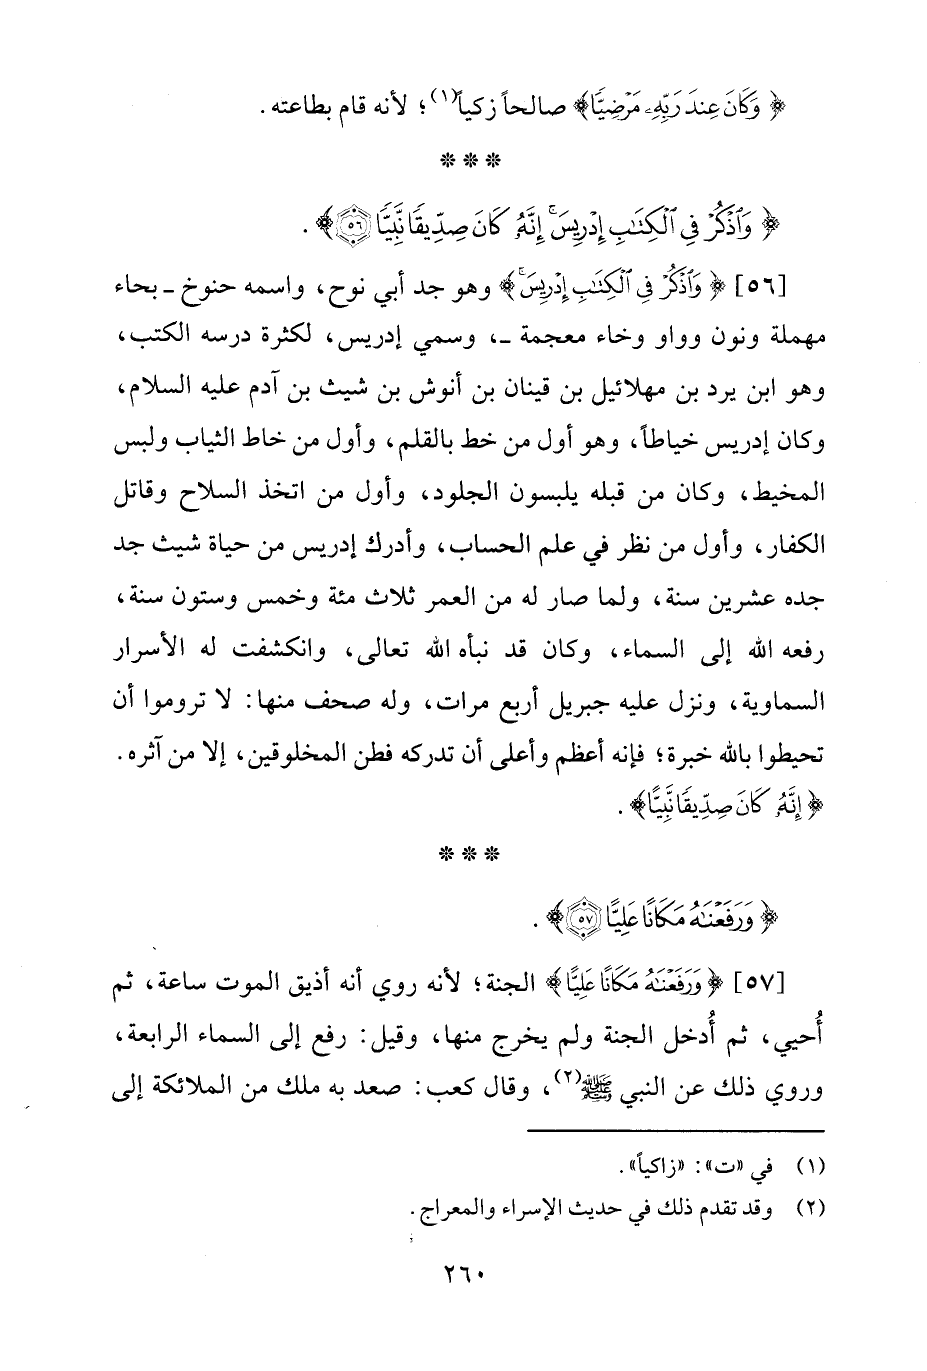 ﴿ وَكَانَ عِندَ رَبِّهِۦ مَرْضِيًّا﴾ صالحاً زكياً(١)؛ لأنه قام بطاعته .
* * *
﴿ وَٱذْكُرْ فِى ٱلْكِتَٰبِ إِدْرِيسَ ۚ إِنَّهُۥ كَانَ صِدِّيقًا نَّبِيًّا ٥٦﴾ .
[٥٦] ﴿ وَٱذْكُرْ فِى ٱلْكِتَٰبِ إِدْرِيسَ ۚ﴾ وهو جد أبي نوح، واسمه حنوخ ـ بحاء
مهملة ونون وواو وخاء معجمة ـ، وسمي إدريس، لكثرة درسه الكتب،
وهو ابن يرد بن مهلائيل بن قينان بن أنوش بن شيث بن آدم عليه السلام،
وكان إدريس خياطاً، وهو أول من خط بالقلم، وأول من خاط الثياب ولبس
المخيط، وكان من قبله يلبسون الجلود، وأول من اتخذ السلاح وقاتل
الكفار، وأول من نظر في علم الحساب، وأدرك إدريس من حياة شيث جد
جده عشرين سنة، ولما صار له من العمر ثلاث مئة وخمس وستون سنة،
رفعه الله إلى السماء، وكان قد نبأه الله تعالى، وانكشفت له الأسرار
السماوية، ونزل عليه جبريل أربع مرات، وله صحف منها: لا تروموا أن
تحيطوا بالله خبرة؛ فإنه أعظم وأعلى أن تدركه فطن المخلوقين، إلا من آثره.
﴿ إِنَّهُۥ كَانَ صِدِّيقًا نَّبِيًّا﴾ .
* * *
﴿ وَرَفَعْنَٰهُ مَكَانًا عَلِيًّا ٥٧﴾ .
[٥٧] ﴿ وَرَفَعْنَٰهُ مَكَانًا عَلِيًّا﴾ الجنة؛ لأنه روي أنه أذيق الموت ساعة، ثم
أُحيي، ثم أُدخل الجنة ولم يخرج منها، وقيل: رفع إلى السماء الرابعة،
وروي ذلك عن النبي ﷺ(٢)، وقال كعب: صعد به ملك من الملائكة إلى
(١) في «ت»: «زاكياً».
(٢) وقد تقدم ذلك في حديث الإسراء والمعراج.
٢٦٠